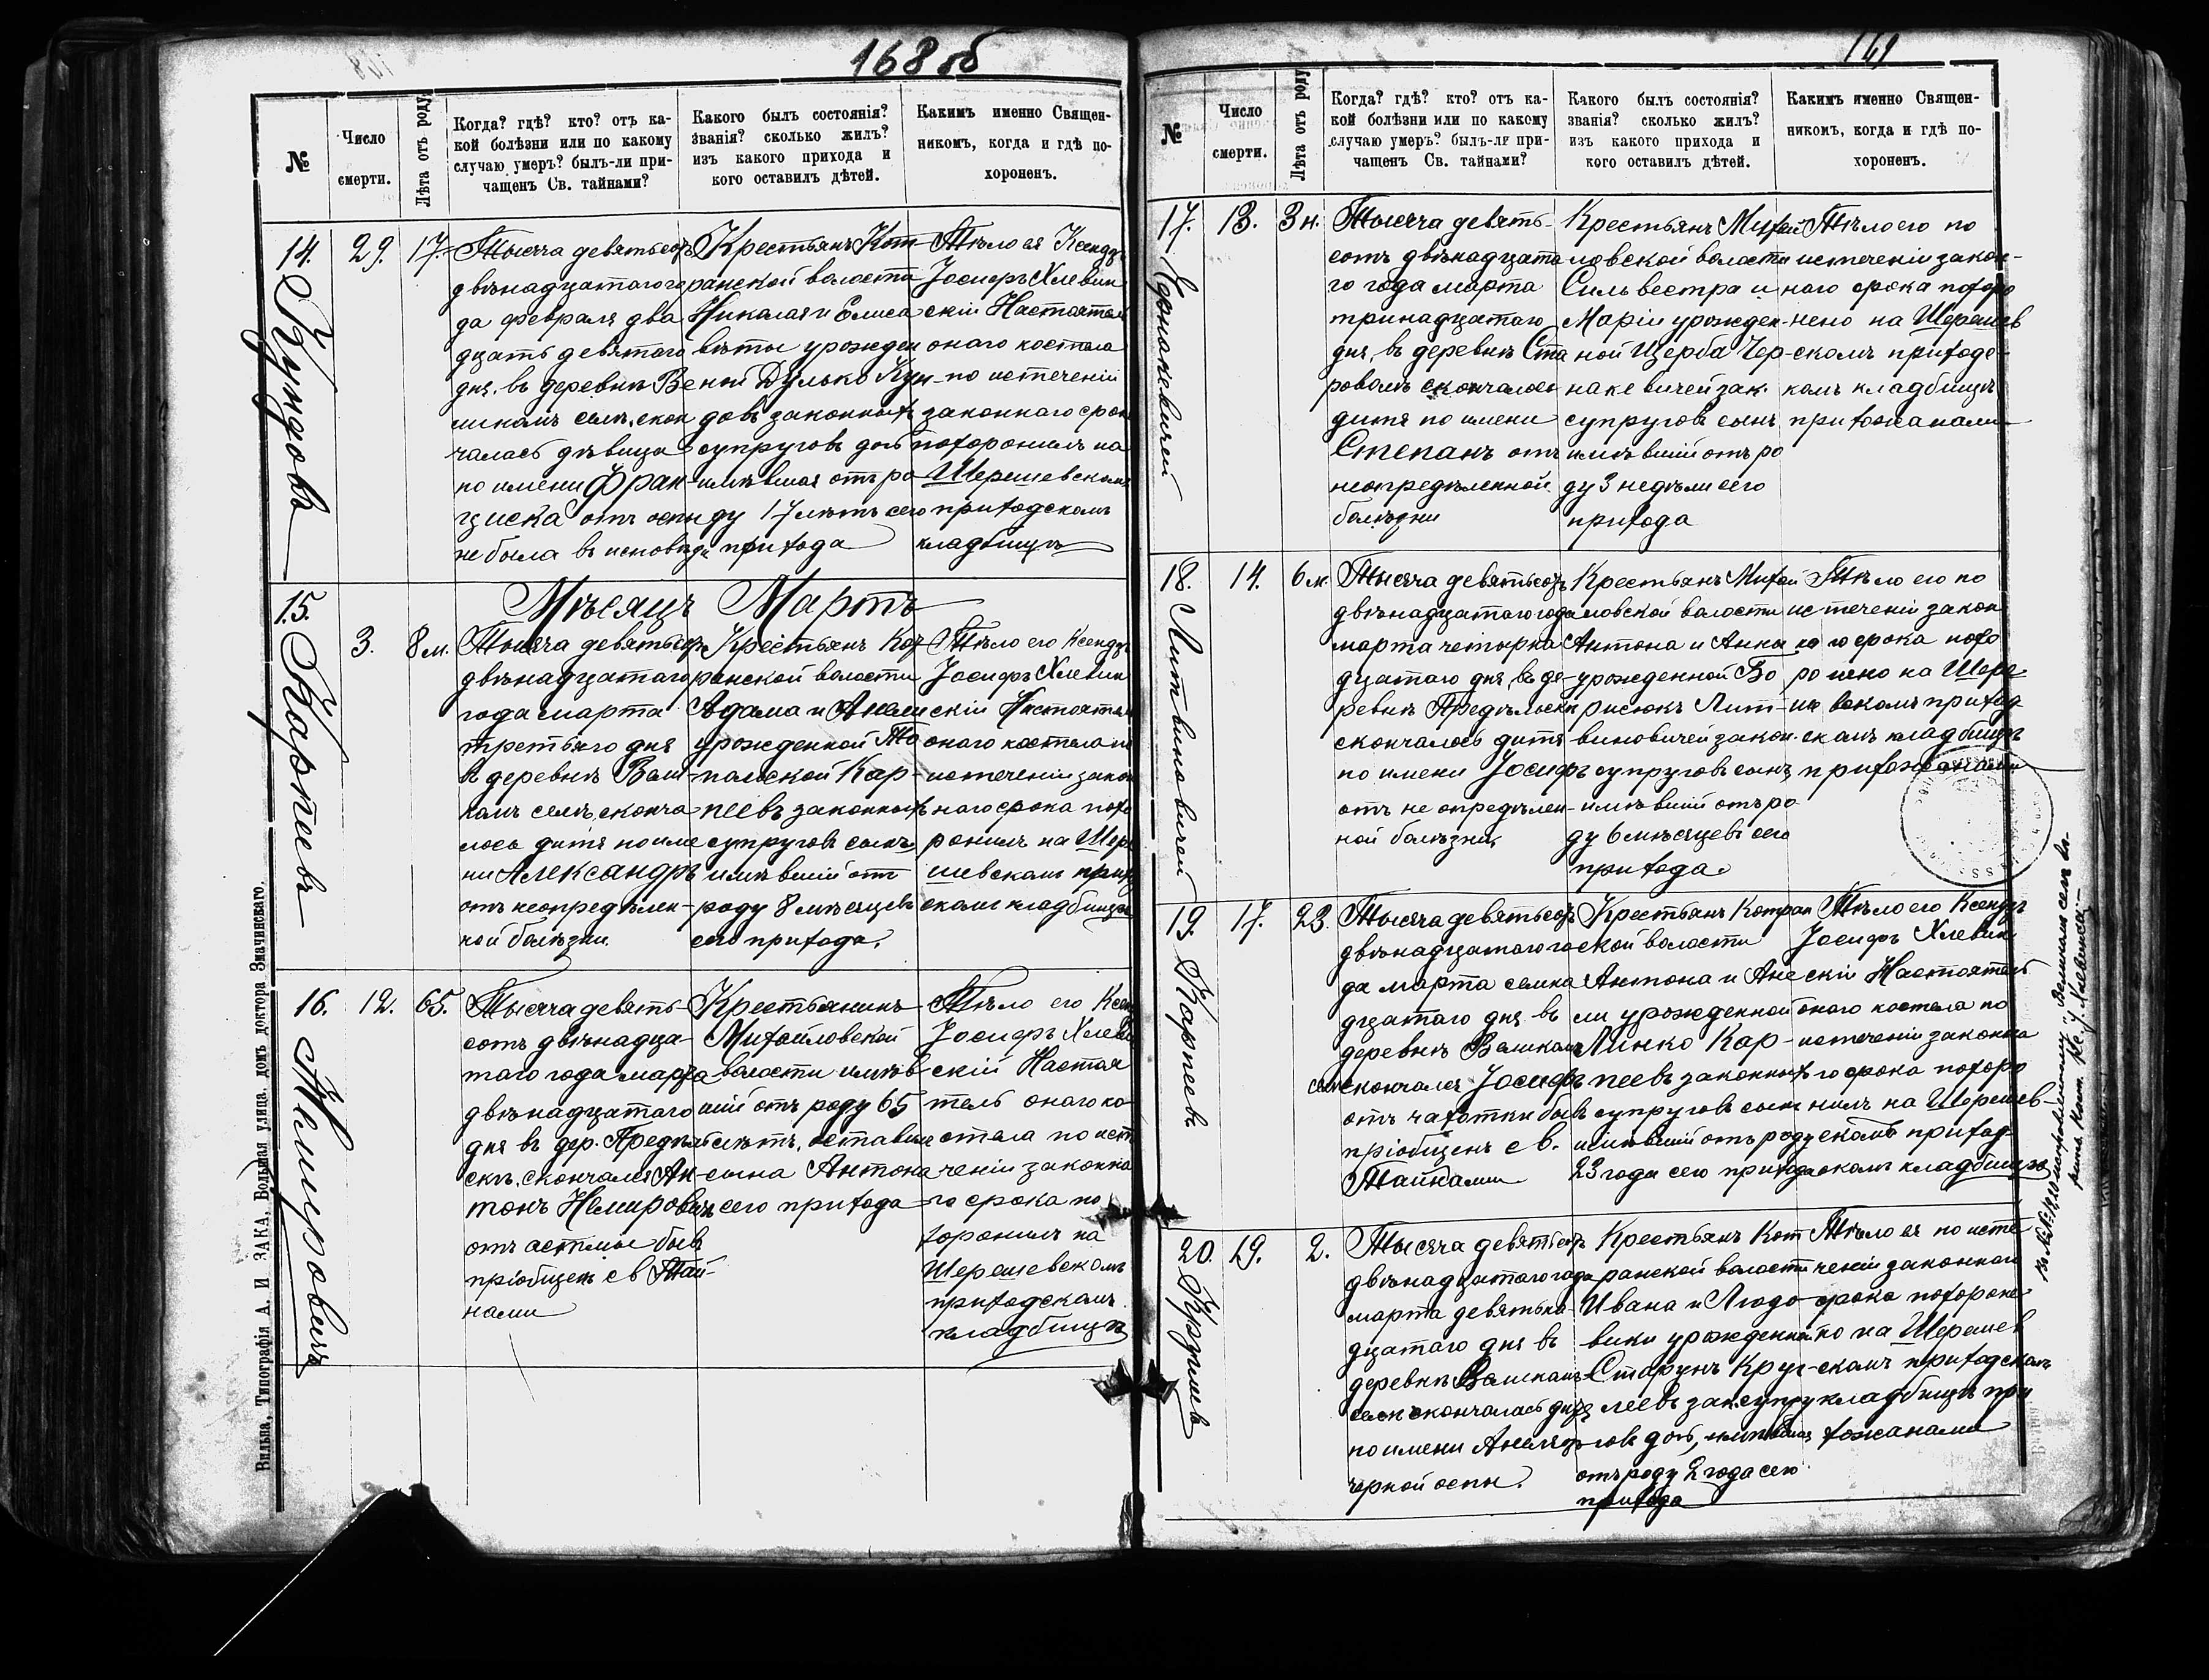 168 об
№
Число смерти.
Лѣта отъ роду.
Когда? гдѣ? кто? отъ ка-
кой болѣзни или по какому
случаю умеръ? былъ-ли при-
чащенъ Св. тайнами?
Какого былъ состоянія?
званія? сколько жилъ?
изъ какого прихода и
кого оставилъ дѣтей.
Какимъ именно Священ-
никомъ, когда и гдѣ по-
хороненъ.
14.
Кундовъ
29.
17.
Тысяча девятьсотъ
двѣнадцатаго го
да февраля два
дцать девятого
дня, въ деревнѣ Ве
ликомъ селѣ, скон
чалась дѣвица
по имени Фран
циска отъ оспы
не была въ исповѣди
Крестьянъ Кот
ранской волости
Николая и Елиса
веты урожден
ной Дулько Кун-
довъ законныхъ
супруговъ дочь
имѣвшая отъ ро
ду 17 лѣтъ сего
прихода
Тѣло ея Ксендзъ
Іосифъ Хлевин
скій Настоятель
онаго костела
по истеченіи
законнаго срока
похоронилъ на
Шерешевскомъ
приходскомъ
кладбищѣ
Мѣсяцъ Мартъ
15.
Карпеевъ
3.
8 м.
Тысяча девятьсотъ
двѣнадцатаго
года марта
третьяго дня
въ деревнѣ Вели
комъ селѣ, сконча
лось дитя по име
ни Александръ
отъ неопредѣлен-
ной болѣзни.
Крестьянъ Кот
ранской волости
Адама и Анели
урожденной То
польской Кар-
пеевъ законныхъ
супруговъ сынъ
имѣвшій отъ
роду 8 мѣсяцевъ
сего прихода.
Тѣло его Ксендзъ
Іосифъ Хлевин
скій Настоятель
онаго костела по
истеченіи закон
наго срока похо
ронилъ на Шере
шевскомъ приход
скомъ кладбищѣ
16.
Немировичъ
12.
65.
Тысяча девять-
сотъ двѣнадца-
таго года марта
двѣнадцатаго
дня въ дер. Предѣль
скѣ, скончался Ан-
тонъ Немировичъ
отъ астмы бывъ
пріобщенъ св Тай-
нами
Крестьянинъ
Михайловской
волости имѣв
шій отъ роду 65
лѣтъ, оставилъ
сына Антона
сего прихода
Тѣло его Ксендзъ
Іосифъ Хлевин
скій Настоя
тель онаго ко-
стела по исте
ченіи законна
го срока по
хоронилъ на
Шерешевскомъ
приходскомъ
кладбищѣ
Вильна, Типографія А. И ЗАКА, Большая улица, домъ доктора Змачинскаго.
169
№
Число смерти.
Лѣта отъ роду
Когда? гдѣ? кто? отъ ка-
кой болѣзни или по какому
случаю умеръ? былъ-ли при-
чащенъ Св. тайнами?
Какого былъ состоянія?
званія? сколько жилъ?
изъ какого прихода и
кого оставилъ дѣтей.
Какимъ именно Священ-
никомъ, когда и гдѣ по-
хороненъ.
17.
Чернакевичей
13.
3 н.
Тысяча девять-
сотъ двѣнадцата
го года марта
тринадцатаго
дня, въ деревнѣ Ста
ровомъ скончалось
дитя по имени
Степанъ отъ
неопредѣленной
болѣзни
Крестьянъ Михай
ловской волости
Сильвестра и
Маріи урожден-
ной Щерба Чер-
накевичей зак.
супруговъ сынъ
имѣвшій отъ ро
ду 3 недѣли сего
прихода
Тѣло его по
истеченіи закон-
наго срока похоро
нено на Шерешев
скомъ приходс-
комъ кладбищѣ
прихожанами
18.
Литвиновичей
14.
6 м.
Тысяча девятьсотъ
двѣнадцатаго года
марта четырна
дцатаго дня, въ де-
ревнѣ Предѣльскѣ
скончалось дитя
по имени Іосифъ
отъ не опредѣлен-
ной болѣзни,
Крестьянъ Михай
ловской волости
Антона и Анны
урожденной Бо
рисюкъ Лит-
виновичей закон.
супруговъ сынъ
имѣвшій отъ ро
ду 6 мѣсяцевъ сего
прихода.
Тѣло его по
истеченіи закон
наго срока похо
ронено на Шере-
шевскомъ приход-
скомъ кладбищѣ
прихожанами
19.
Карпеевъ
17.
23.
Тысяча девятьсотъ
двѣнадцатаго го
да марта семна
дцатаго дня въ
деревнѣ Великомъ
селѣ скончался Іосифъ
отъ чахотки бывъ
пріобщенъ св.
Тайнами
Крестьянъ Котран
ской волости
Антона и Ане
ли урожденной
Линко Кар-
пеевъ законныхъ
супруговъ сынъ
имѣвшій отъ роду
23 года сего прихода
Тѣло его Ксендзъ
Іосифъ Хлевин
скій Настоятель
онаго костела по
истеченіи законна
го срока похоро
нилъ на Шерешев-
скомъ приход-
скомъ кладбищѣ
20.
Круглеевъ
19.
2.
Тысяча девятьсотъ
двѣнадцатаго года
марта девятна-
дцатаго дня въ
деревнѣ Великомъ
селѣ скончалась дитя
по имени Анеля отъ
черной оспы.
Крестьянъ Кот
ранской волости
Ивана и Людо-
вики урожденной
Старунъ Круг-
леевъ зак. супру
говъ дочь, имѣвшая
отъ роду 2 года сего
прихода
Тѣло ея по исте
ченіи законнаго
срока похороне-
но на Шерешев
скомъ приходскомъ
кладбищѣ при
хожанами